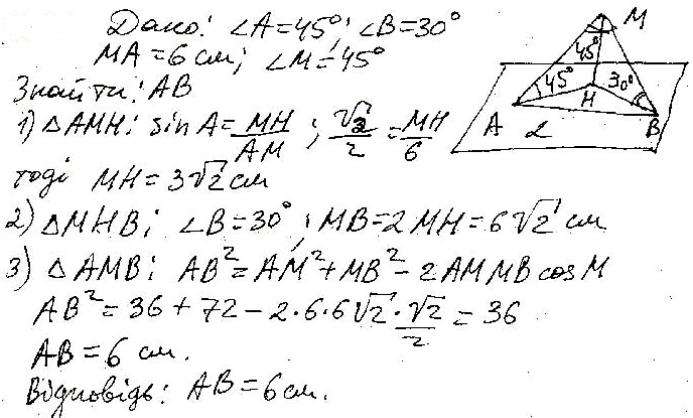 Дано: ∠A=45°; ∠B=30°
MA=6 см; ∠M=45°
Знайти: AB
1) △AMH: sin A = MH/AM ; √2/2 = MH/6
тоді MH=3√2 см
2) △MHB; ∠B=30°; MB=2MH=6√2 см
3) △AMB: AB²=AM²+MB²-2AM MB cos M
AB²=36+72-2·6·6√2·√2/2=36
AB=6 см.
Відповідь: AB=6см.
M
45°
45°
30°
H
A
α
B